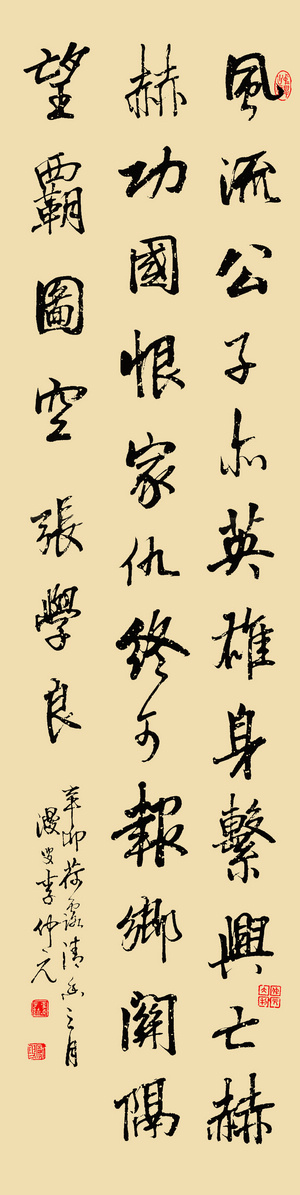 風流公子亦英雄身繫興亡赫
赫功國恨家仇終可報鄉關隔
望覇圖空張學良
辛卯荷露清幽之月
漫叟李仲元